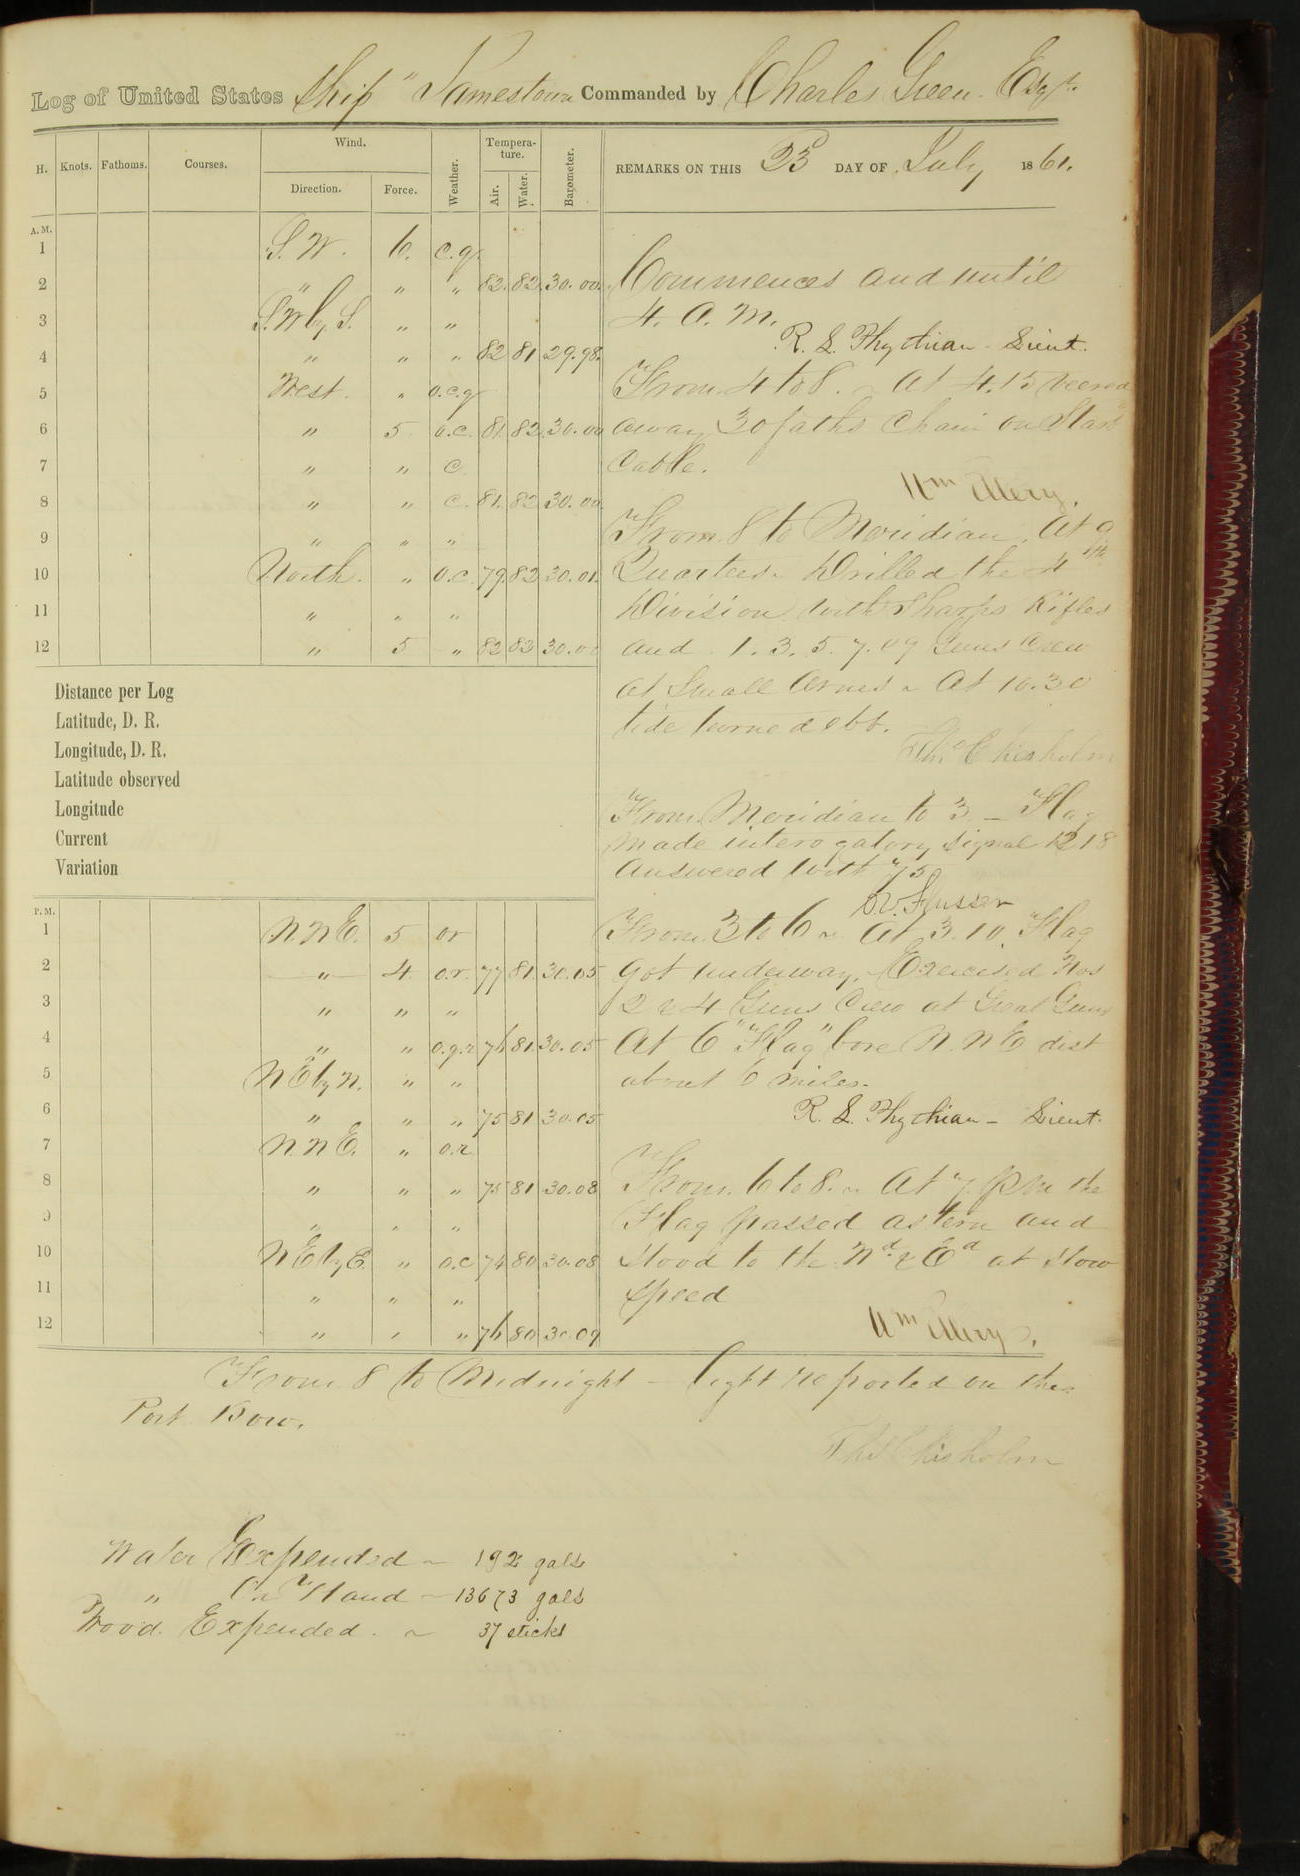 Log of United States Ship "Jamestown Commanded by Charles Green Esqr.
H. Knots. Fathoms. Courses. Wind. Direction. Force. Weather. Tempera-ture. Air. Water. Barometer. REMARKS ON THIS 23 DAY OF July 1861.
A. M.
1 S.W. 6. c.q.
2 " " " 82. 82. 30.00.
3 S.W by S. " "
4 " " " 82 81 29.98.
5 West. " o.c.q
6 " 5 o.c. 81. 82. 30.00
7 " " c
8 " " c. 81. 82. 30.00.
9 " " "
10 North. " o.c. 79. 82 30.01.
11 " " "
12 " 5 " 82 83 30.00
Commences and until
4. A. M.
R. L. Phythian - Lieut.
From 4 to 8. ~ At 4.15 veered
away 30 faths chain on Starb
Cable.
Wm Ellery.
From 8 to Meridian. At 9
Quarters. Drilled the 4th
Division with Sharps Rifles
and 1. 3. 5. 7. 9 Guns Crew
at Small Arms ~ At 10.30
tide turned ebb.
Thos Chisholm
Distance per Log
Latitude, D. R.
Longitude, D. R.
Latitude observed
Longitude
Current
Variation
From Meridian to 3 _ Flag
made interogatory signal 1218
Answered with 75
Flusser
P. M.
1 N.N.E. 5 or
2 " 4 o.r. 77 81 30.05
3 " " "
4 " " o.q.r 76 81. 30.05
5 N E by N. " "
6 " " " 75 81 30.05
7 N.N.E. " o.r
8 " " " 75 81 30.08
9 " " "
10 N E by E. " o.c 74 80 30.08
11 " " "
12 " " " 76 80 30.09
From 3 to 6 ~ At 3.10 Flag
got underway. Exercised Nos
2 & 4 Guns Crew at Great Guns
At 6 "Flag" bore N N E dist
about 6 miles.
R. L. Phythian - Lieut.
From 6 to 8. ~ At 7. P.M the
Flag passed astern and
stood to the Nd & Ed at slow
speed
Wm Ellery.
From 8 to Midnight - light reported on the
Port Bow.
Thos Chisholm
Water Expended ~ 192 gals
" On Hand ~ 13673 gals
Wood Expended. ~ 37 sticks